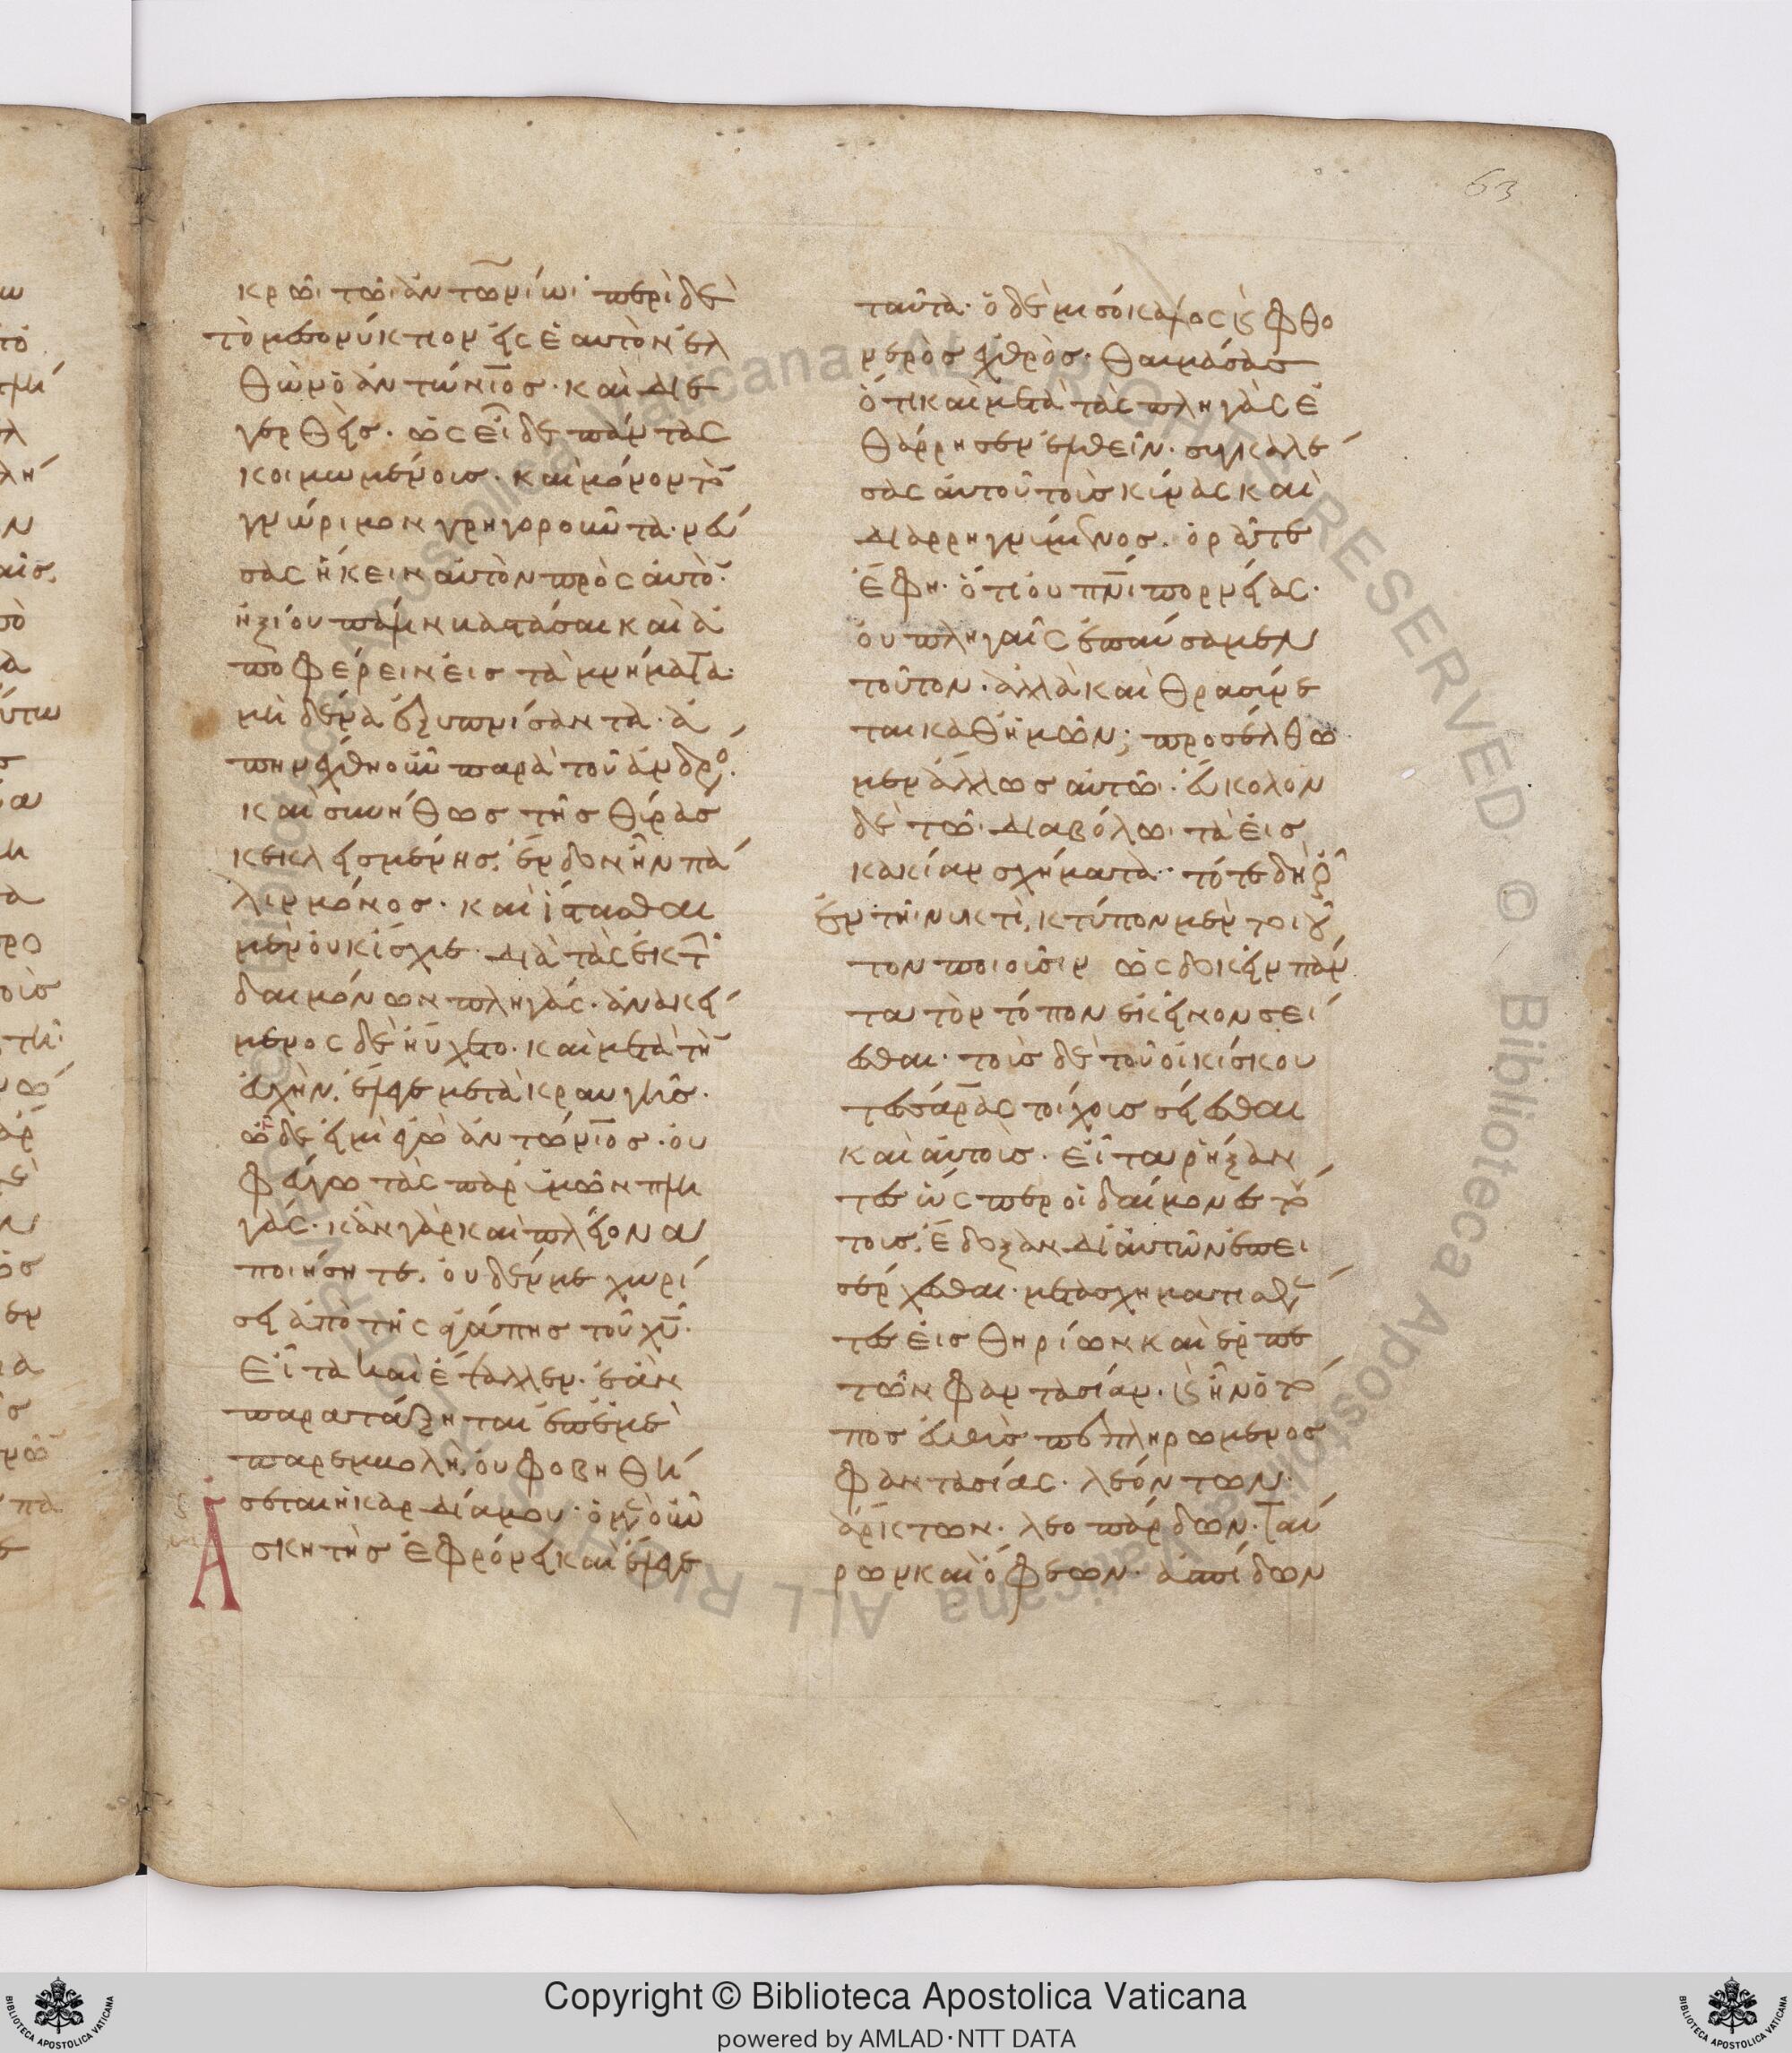 63
κρῶι τῶι ἀντωνίωι περὶ δὲ
τὸ μεσονύκτιον εἰς ἑαυτὸν ἐλ
θὼν ὁ ἀντώνιος· καὶ διε
γερθεὶς· ὡς εἶδε πάντας
κοιμωμένους· καὶ μόνον τὸ
γνώριμον γρηγοροῦντα· νεύ
σας ἥκειν αὐτὸν πρὸς αὐτὸ·
ἠξίου πάλιν βαστάσαι καὶ ἀ
ποφέρειν εἰς τὰ μνήματα·
μηδένα ἐξυπνίσαντα· ἀ
πηνέχθη οὖν παρὰ τοῦ ἀνδρο·
καὶ συνήθως τῆς θύρας
κεκλεισμένης, ἔνδον ἦν πά
λιν μόνος· καὶ ἵστασθαι
μὲν οὐκ ἴσχυε διὰ τὰς ἐκ τ
δαιμόνων πληγάς· ἀνακεί
μενος δὲ ηὔχετο· καὶ μετὰ τὴ
εὐχὴν, ἔλεγε μετὰ κραυγῆς·
ὧδε εἰμὶ ἐγὼ ἀντώνιος· οὐ
φεύγω τὰς παρ' ὑμῶν πλη
γάς· κἂν γὰρ καὶ πλείονα
ποιήσητε, οὐδέν με χωρί
σει ἀπὸ τῆς ἀγάπης τοῦ χυ·
Εἶτα καὶ ἔψαλλεν· ἐὰν
παρατάξηται ἐπ' ἐμὲ
παρεμβολὴ, οὐ φοβηθή
σεται ἡ καρδία μου· ὁ μὲν οὖν
Ἀσκητὴς ἐφρόνει καὶ ἔλεγε
ταῦτα· ὁ δὲ μισόκαλος κ φθο
νερὸς ἐχθρὸς· θαυμάσας
ὅτι καὶ μετὰ τὰς πληγὰς ἐ
θάρρησεν ἐλθεῖν· συγκαλέ
σας αὐτοῦ τοὺς κύνας καὶ
διαρρηγνύμενος· ὁρᾶτε
ἔφη· ὅτι οὐ πνι πορνείας·
οὐ πληγαῖς ἐπαύσαμεν
τοῦτον· ἀλλὰ καὶ θρασύνε
ται καθ' ἡμῶν; προσέλθω
μεν ἄλλως αὐτῶι· εὔκολον
δὲ τῶι διαβόλωι τὰ εἰς
κακίαν σχήματα· τότε δὴ οὖ
ἐν τῆι νυκτὶ, κτύπον μὲν τοιοῦ
τον ποιοῦσιν ὡς δοκεῖν πάν
τα τὸν τόπον ἐκεῖνον σεί
εσθαι· τοὺς δὲ τοῦ οἰκίσκου
τέσσαρας τοίχους σείεσθαι
καὶ αὐτοὺς· εἶτα ῥήξαν
τες ὥσπερ οἱ δαίμονες τού
τους, ἔδοξαν δι' αὐτῶν ἐπει
σέρχεσθαι· μετασχηματισθέν
τες εἰς θηρίων καὶ ἑρπε
τῶν φαντασίαν· κ ἦν ὁ τό
πος εὐθὺς πεπληρωμένος
φαντασίας· λεόντων·
ἄρκτων· λεοπάρδων· ταύ
ρων καὶ ὄφεων· ἀσπίδων
Copyright © Biblioteca Apostolica Vaticana
powered by AMLAD·NTT DATA